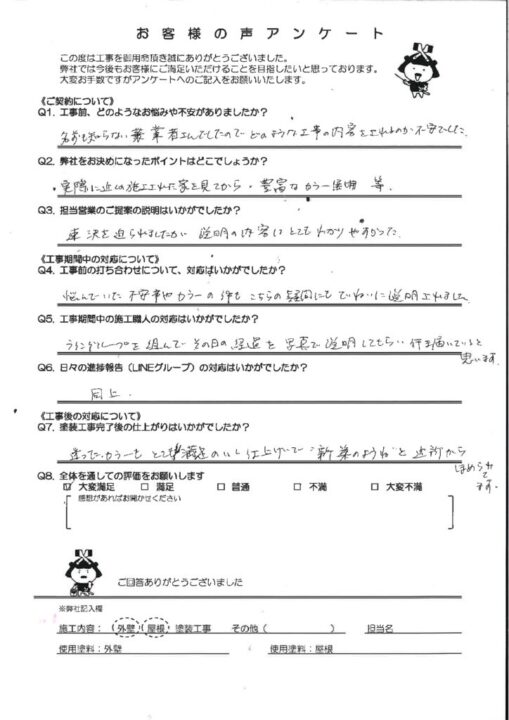 お客様の声アンケート
この度は工事を御用命頂き誠にありがとうございました。
弊社では今後もお客様にご満足いただけることを目指したいと思っております。
大変お手数ですがアンケートへのご記入をお願いいたします。
《ご契約について》
Q1. 工事前、どのようなお悩みや不安がありましたか?
名前も知らない業者さんでしたのでどのような工事の内容をされるのか不安でした。
Q2. 弊社をお決めになったポイントはどこでしょうか?
・実際に近くの施工された家を見てから・豊富なカラー展開 等.
Q3. 担当営業のご提案の説明はいかがでしたか?
即決を迫られましたが 説明の内容はとてもわかりやすかった.
《工事期間中の対応について》
Q4. 工事前の打ち合わせについて、対応はいかがでしたか?
悩んでいた不安事やカラーの件もこちらの疑問にもていねいに説明されました
Q5. 工事期間中の施工職人の対応はいかがでしたか?
ライングループを組んでその日の経過を写真で説明してもらい行き届いていると
思います.
Q6. 日々の進捗報告(LINEグループ)の対応はいかがでしたか?
同上.
《工事後の対応について》
Q7. 塗装工事完了後の仕上がりはいかがでしたか?
カラーもとても満足のいく仕上げで"新築のようね"と近所から
ほめられて
ます.
Q8. 全体を通しての評価をお願いします
☑ 大変満足 □ 満足 □ 普通 □ 不満 □ 大変不満
感想があればお聞かせください
ご回答ありがとうございました
※弊社記入欄
施工内容: (外壁)(屋根) 塗装工事 その他 ( ) 担当名
使用塗料:外壁 使用塗料:屋根